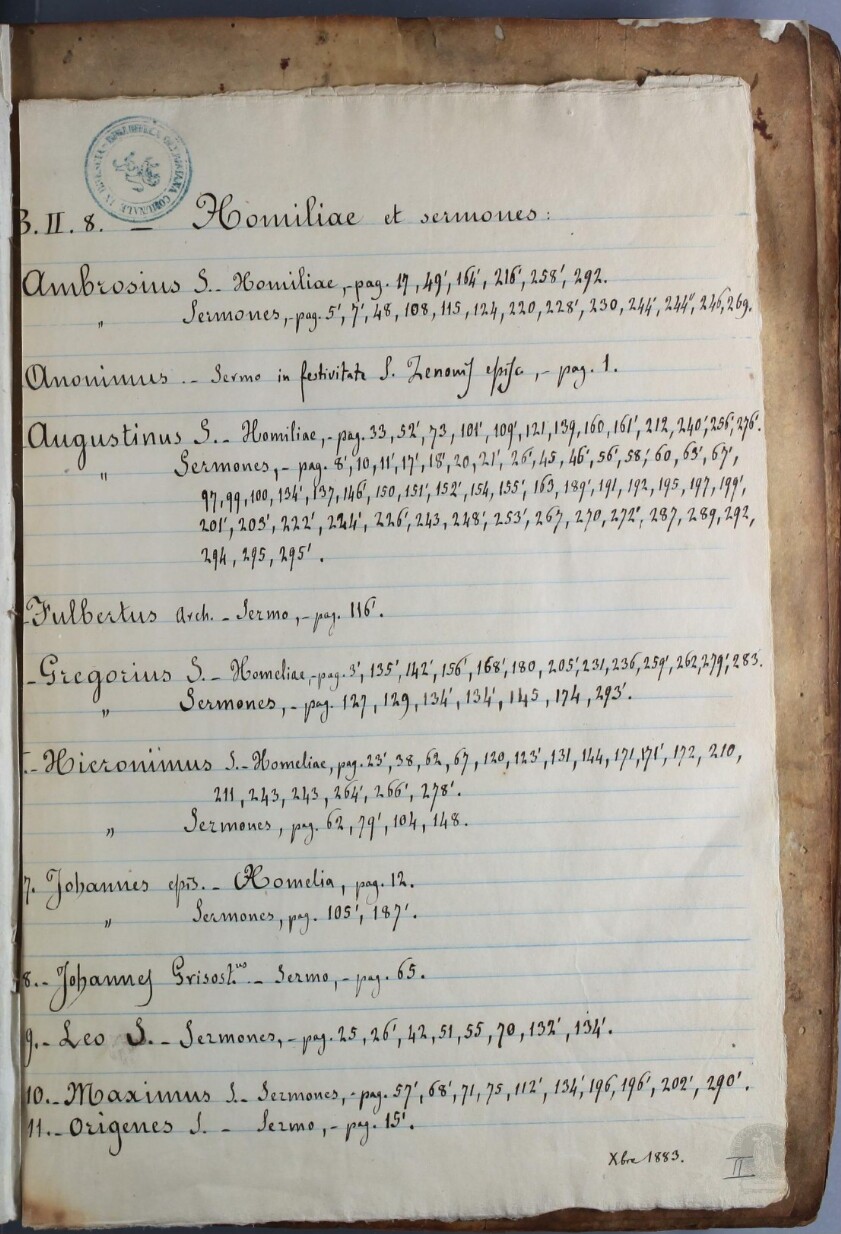 B. II. 8. — Homiliae et sermones:
Ambrosius S. - Homiliae, - pag. 17, 49', 164', 216', 258', 292.
" Sermones, - pag. 5', 7', 48, 108, 115, 124, 220, 228', 230, 244', 244", 246, 269.
Anonimus. - Sermo in festivitate S. Zenonis episc, - pag. 1.
Augustinus S. - Homiliae, - pag. 33, 52', 73, 101', 109', 121, 139, 160, 161', 212, 240', 256', 276'.
" Sermones, - pag. 8', 10, 11', 17', 18', 20, 21', 26', 45, 46', 56', 58', 60, 63', 67',
97, 99, 100, 134', 137, 146', 150, 151', 152', 154, 155', 163, 189', 191, 192, 195, 197, 199',
201', 203', 222', 224', 226', 243, 248', 253', 267, 270, 272', 287, 289, 292,
294, 295, 295'.
Fulbertus Arch. - Sermo, - pag. 116'.
- Gregorius S. - Homeliae, - pag. 3', 135', 142', 156', 168', 180, 205', 231, 236, 259', 262, 279', 283.
" Sermones, - pag. 127, 129, 134', 134', 145, 174, 293'.
- Hieronimus S. - Homeliae, pag. 23', 38, 62, 67, 120, 123', 131, 144, 171, 171', 172, 210,
211, 243, 243, 264', 266', 278'.
" Sermones, pag. 62, 79', 104, 148.
7. Johannes epis. - Homelia, pag. 12.
" Sermones, pag. 105', 187'.
8. - Johannes Grisost.mus - Sermo, - pag. 65.
9. - Leo S. - Sermones, - pag. 25, 26', 42, 51, 55, 70, 132', 134'.
10. - Maximus S. - Sermones, - pag. 57', 68', 71, 75, 112', 134', 196, 196', 202', 290'.
11. - Origenes S. - Sermo, - pag. 15'.
Xbre 1883.
II